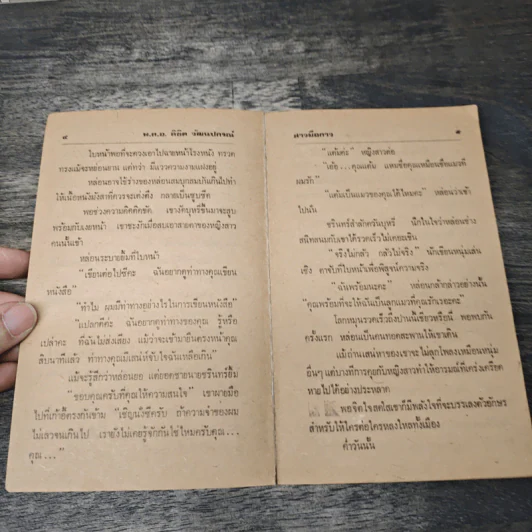 ๘ พ.ต.อ. ลิขิต วัฒนปกรณ์
ใบหน้าพอที่จะตรงเอาไปฉายหน้าโรงหนัง ทรวด
ทรงแม้จะหย่อนยาน แต่ทว่า มีแววความงามแฝงอยู่
หล่อนอาจใช้ร่างของหล่อนสมบุกสมบันเกินไปทำ
ให้เนื้อหนังมังสาที่ควรจะเต่งตึง กลายเป็นซูบซีด
พอช่วงความคิดคิดขัด เขาวางบุหรี่ขึ้นมาจะสูบ
พร้อมกับเงยหน้า เขาชะงักเมื่อสบเอาสายตาของหญิงสาว
คนนั้นเข้า
หล่อนระบายยิ้มที่ใบหน้า
“เขียนต่อไปซีคะ ฉันอยากดูท่าทางคุณเขียน
หนังสือ”
“ทำไม ผมมีท่าทางอย่างไรในการเขียนหนังสือ”
“แปลกดีค่ะ ฉันอยากดูท่าทางของคุณ รู้หรือ
เปล่าคะ ที่ฉันไม่ส่งเสียง แม้ว่าจะเข้ามายืนตรงหน้าคุณ
สิบนาทีแล้ว ท่าทางคุณมีเสน่ห์จับใจฉันเหลือเกิน”
แม้จะรู้สึกว่าหล่อนยอ แต่ยอดชายนายชรินทร์ยิ้ม
“ขอบคุณครับที่คุณให้ความสนใจ” เขาผายมือ
ไปที่เก้าอี้ตรงกันข้าม “เชิญนั่งซีครับ ถ้าความจำของผม
ไม่เลวจนเกินไป เรายังไม่เคยรู้จักกันใช่ไหมครับคุณ...
คุณ...”
สาวมือกาว ๙
“แต๋มค่ะ” หญิงสาวต่อ
“เอ้อ...คุณแต๋ม แหมชื่อคุณเหมือนชื่อแมวที่
ผมรัก”
“แต๋มเป็นแมวของคุณได้ไหมคะ” หล่อนว่าเข้า
ไปนั่น
ชรินทร์สำลักควันบุหรี่ นึกในใจว่าหล่อนช่าง
สนิทสนมกับเขาได้รวดเร็วไม่เคยอะเขิน
“จริงไม่กลัว กลัวไม่จริง” นักเขียนหนุ่มเล่น
เชิง ตาจับที่ใบหน้าเพื่อพิสูจน์ความจริง
“ฉันพร้อมนะคะ” หล่อนกล้ากล่าวอย่างนั้น
“คุณพร้อมที่จะให้ฉันเป็นลูกแมวที่คุณรักเธอคะ”
โลกหมุนรวดเร็วถึงปานนี้เชียวหรือนี่ พอพบกัน
ครั้งแรก หล่อนเป็นคนทอดสะพานให้เขาเดิน
แม้ถ่านเสน่หาของเขาจะไม่ลุกโพลงเหมือนหนุ่ม
อื่นๆ แต่บางทีการคุยกับหญิงสาวทำให้อารมณ์ที่เคร่งเครียด
หายไปได้อย่างประหลาด
พอจิตใจสดใสเขาก็มีพลังใจที่จะบรรเลงตัวอักษร
สำหรับให้ใครต่อใครหลงใหลทั้งเมือง
ค่ำวันนั้น